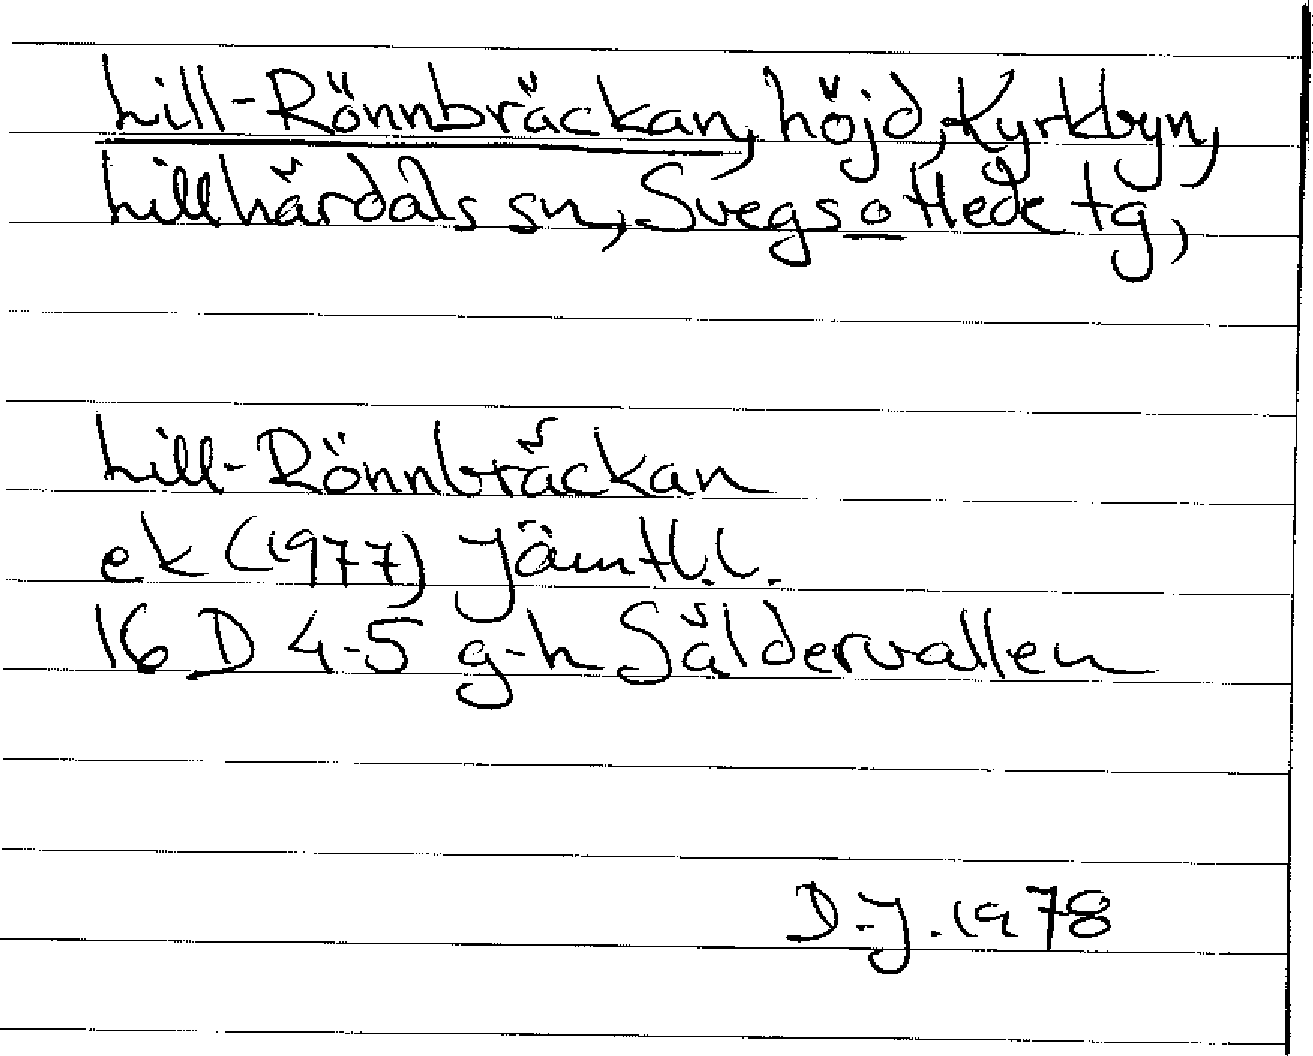 Lill-Rönnbräckan, höjd, Kyrkbyn,
Lillhärdals sn, Svegs o Hede tg,
Lill-Rönnbräckan
ek (1977) Jämtl.l.
16 D 4-5 g-h Säldervallen
D-J. 1978